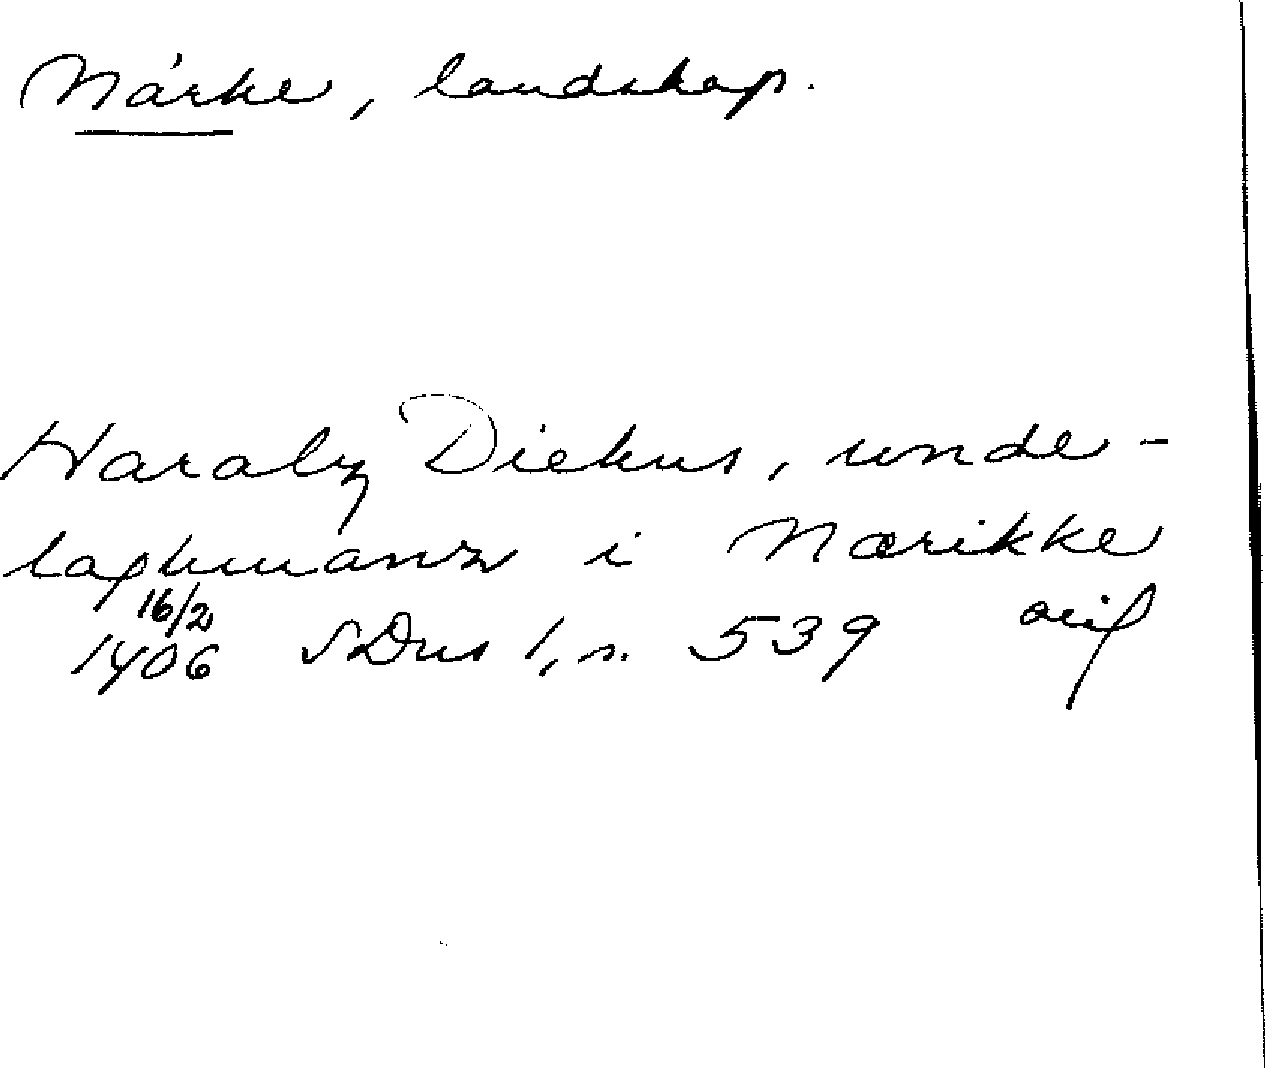 Närke, landskap.
Haralz Diekns, unde-
laghmanz i Nærikke
16/2
1406 SDns 1, s. 539 orig